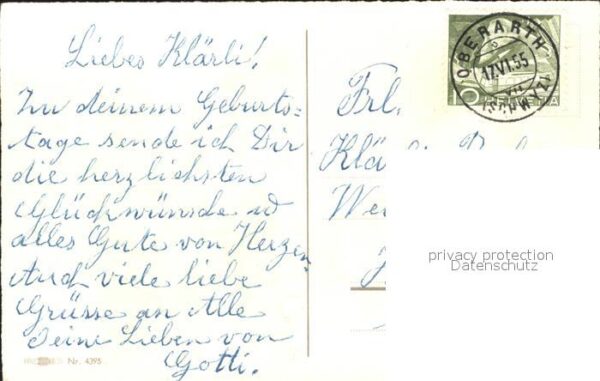 Liebes Klärli!
Zu deinem Geburts=
tage sende ich Dir
die herzlichsten
Glückwünsche u
alles Gute von Herzen
Auch viele liebe
Grüsse an Alle
Deine Lieben von
Gotti.
Nr. 4395
OBERARTH
17.VI.55
(SCHWYZ)
10 HELVETIA
Frl.
Klärli
We
privacy protection
Datenschutz